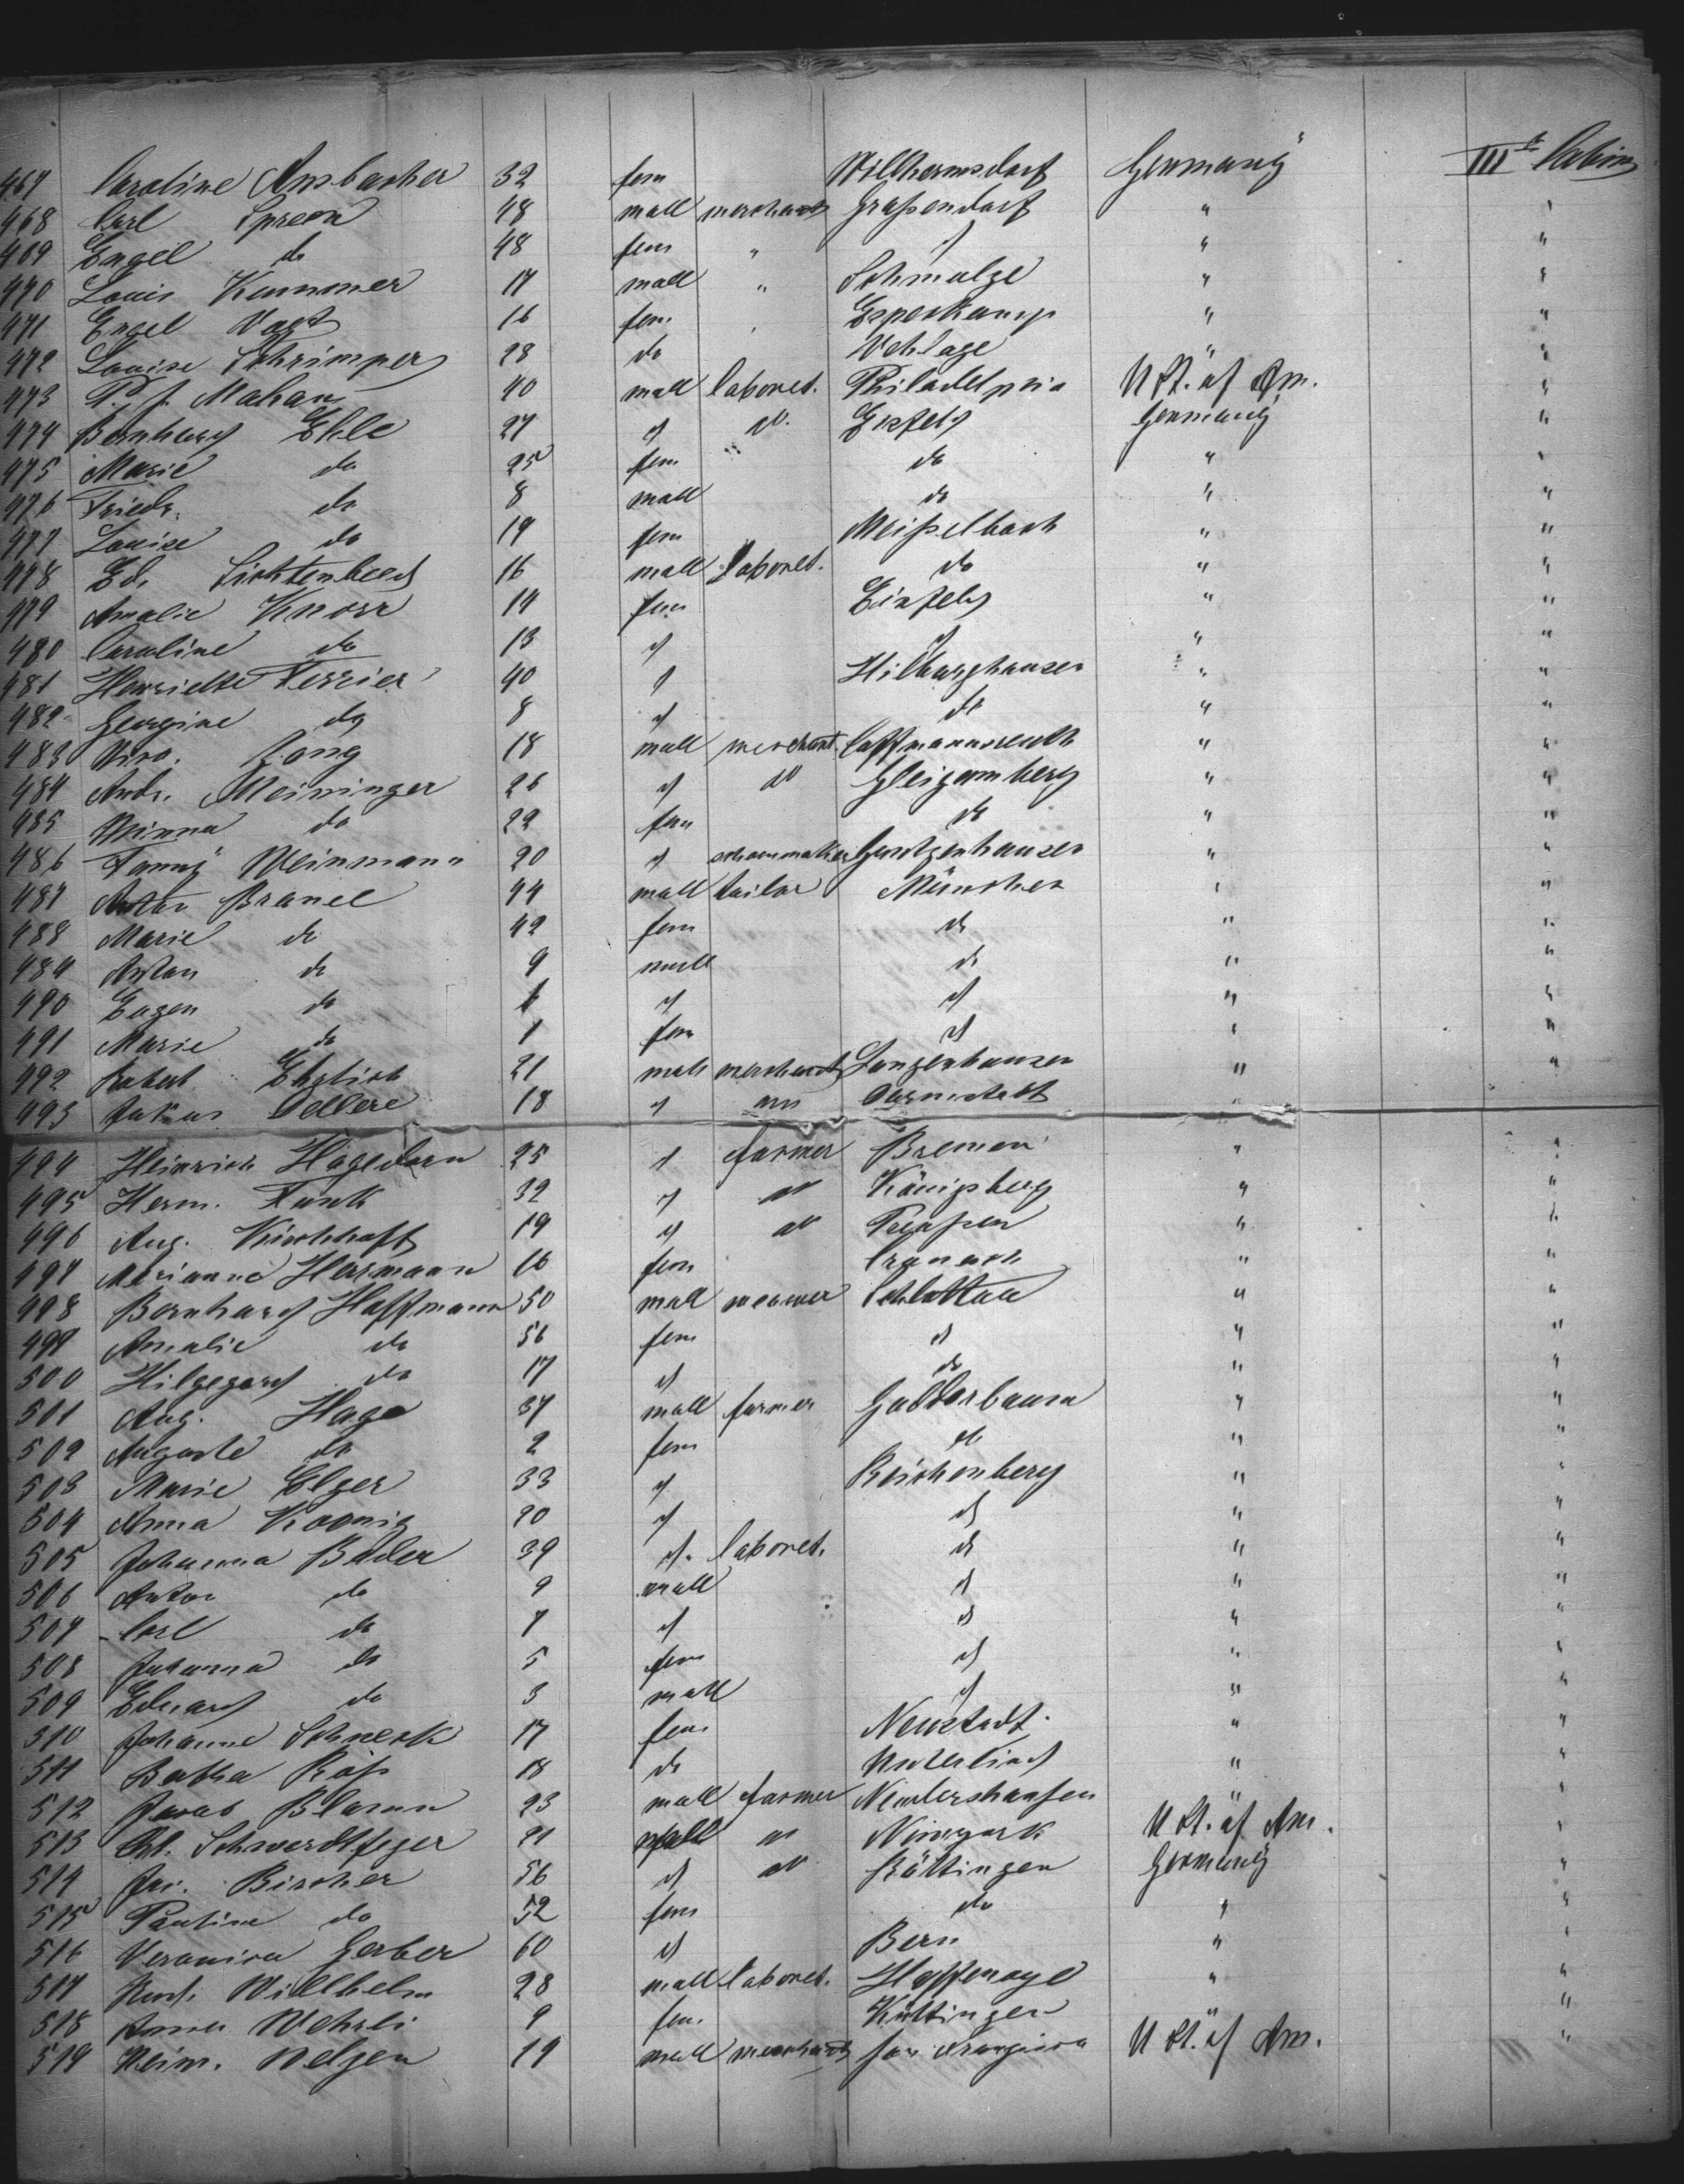 467 Caroline Ansbacher 32 fem Wilhermsdorf Germany IIId Cabin
468 Carl Spreen 48 mall merchant Graßendorf " "
469 Engel do 48 fem " d " "
470 Louis Kummer 17 mall " Schmalge " "
471 Engel Vogt 16 fem. " Esperkamp " "
472 Louise Schrimper 28 do Vehlage " "
473 P. J. Mahan 40 mall laboret. Philadelpia U St. of Am. "
474 Bernhard Ehle 27 d do. Eisfeld Germany "
475 Marie do 25 fem " do " "
476 Friedr. do 8 mall do " "
477 Louise do 19 fem Meißelbach " "
478 Ed. Lichtenbeed 16 mall laboret. do " "
479 Amalie Knorr 14 fem Eisfeld " "
480 Caroline do 13 d d " "
481 Henriette Ferrier 40 d Hilburghausen " "
482 Georgine do 8 d do " "
483 Jong 18 mall merchant " "
484 Andr. Meininger 26 d do Gleigamberg " "
485 Minna do 22 fem do " "
486 Fanny Weinmann 20 d Guntzenhausen " "
487 Anton Branel 44 mall tailor München " "
488 Marie do 42 fem do " "
489 Anton do 9 mall do " "
490 Eugen do d d " "
491 Marie do 1 fem d " "
492 Robert Ehrlich 21 mall merchant Langenhausen " "
493 Oellere 18 d do Darmstadt "
494 Heinrich Hagedorn 25 d farmer Bremen " "
495 Herm. Funk 32 d do Königsberg " "
496 Aug. Kirchhoff 19 d do Preußen " "
497 Marianne Hermann 16 fem Cranach " "
498 Bernhard Hoffmann 50 mall weawer Schlottau " "
499 Amalie do 56 fem d " "
500 Hilgegard do 17 d do " "
501 Aug. Hage 37 mall farmer Gadderbaum " "
502 Auguste do 2 fem do " "
503 Marie Elger 33 d Reichenberg " "
504 Anna Koenig 20 d d " "
505 Johanna Bader 39 d. laboret. d " "
506 Anton do 9 mall d " "
507 Carl do 7 d d " "
508 Johanna do 5 fem d " "
509 Eduard do 3 mall d " "
510 Johanne Schneck 17 fem Neustadt " "
511 Babba Röß 18 do Unterlind " "
512 Jacob Blamm 23 mall farmer Neutershausen " "
513 Chr. Schwerdtfeger 21 mall do Newyork U St. of Am. "
514 Jac. Bircher 56 d do Küttingen Germany "
515 Pauline do 52 fem do " "
516 Veronica Gerber 60 d Bern " "
517 Rud. Willhelm 28 mall laboret. " "
518 Anna Wehrli 9 fem. Küttingen " "
519 Heinr. Nelgen 19 mall merchant San Francisco U St. of Am. "